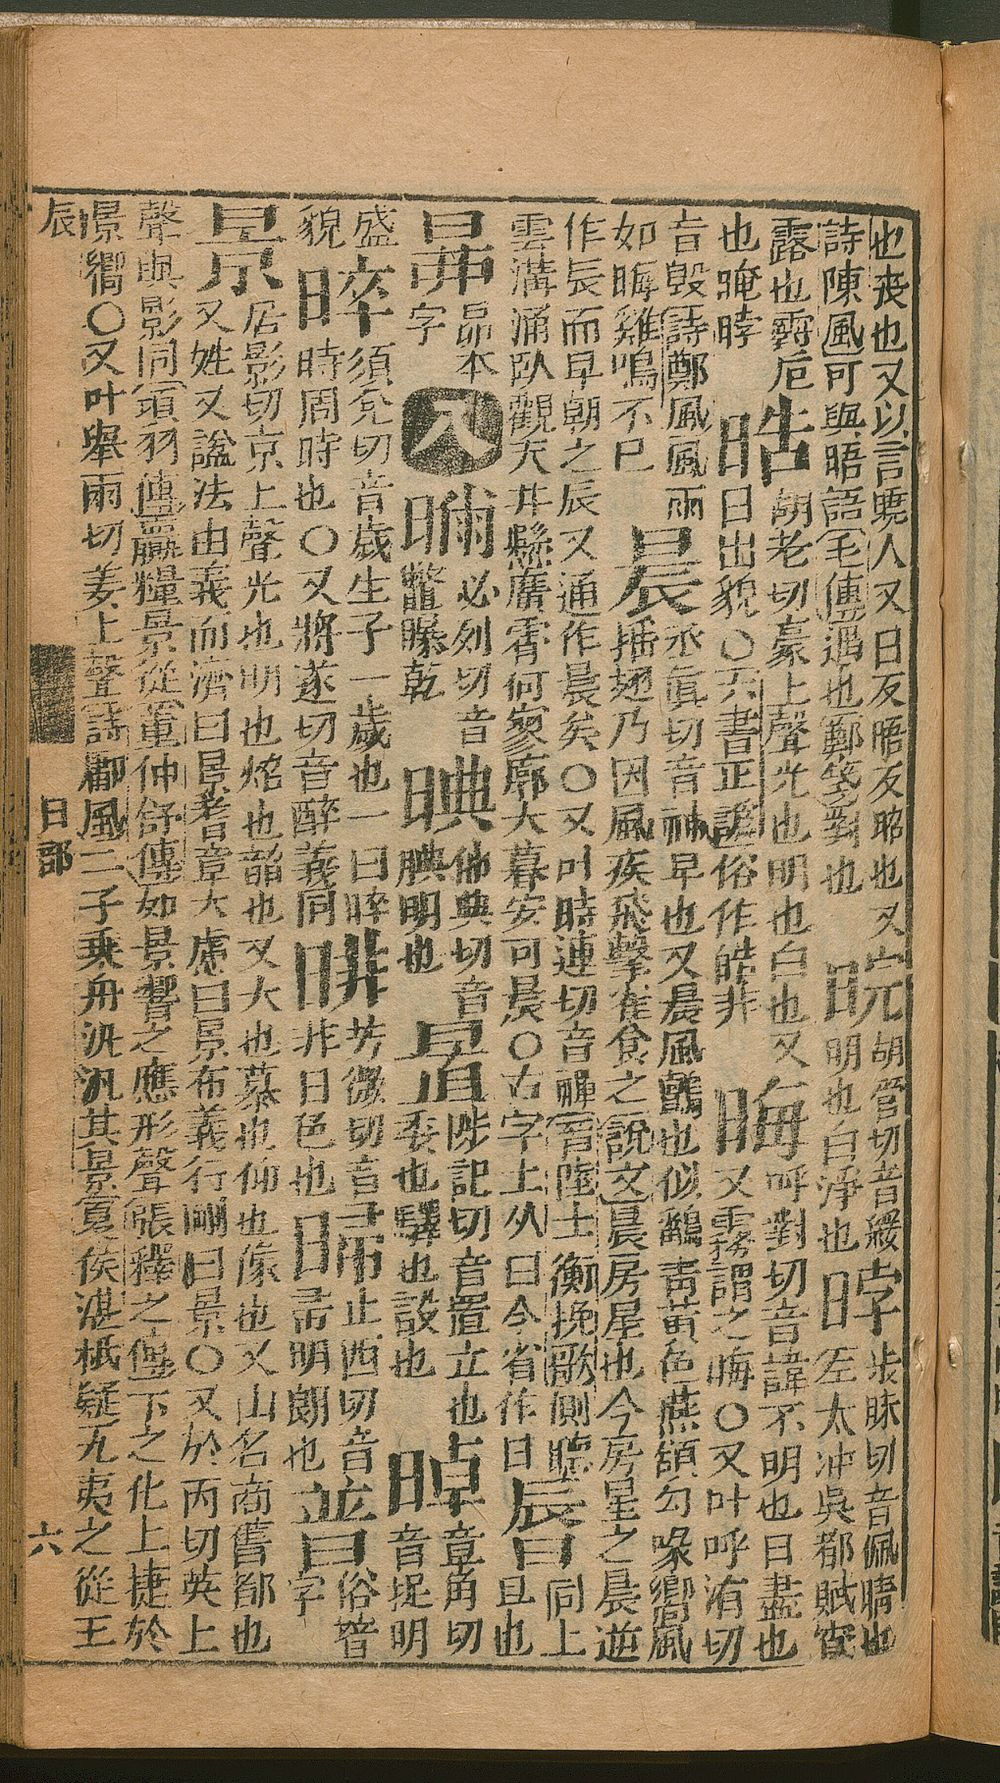 也喪也又以言曉人又曰反晤反昭也又
詩陳風可與晤語毛傳遇也鄭箋對也
晥 胡管切音緩
明也白淨也
㫲 步昧切音佩晴也
左太冲吳都賦宵
露也
也晻㫲
晧 胡老切豪上聲光也明也白也又
日出貌○六書正譌俗作皓非
晦 呼對切音誨不明也日盡也
又霧謂之晦○又叶呼洧切
音毁詩鄭風風雨
如晦雞鳴不已
晨 丞眞切音神早也又晨風鸇也似鷂靑黃色燕頷勾喙嚮風
搖翅乃因風疾飛擊雀食之說文晨房星也今房星之晨逆
作辰而早朝之辰又通作晨矣○又叶時連切音禪晉陸士衡挽歌側聽
雲溝涌臥觀天井縣廣霄何寥廓大暮安可晨○古字上从臼今省作日
同上
旦也
昴本
字
八
必列切音
鼈曝乾
晪 他典切音
腆明也
陟記切音置立也
委也驛也設也
晫 章角切
音捉明
盛
貌
晬 須兊切音歲生子一歲也一曰晬
時周時也○又將遂切音醉義同
芳微切音
非日色也
止酉切音
帚明朗也
暜 俗普
字
景 居影切京上聲光也明也炤也韶也又大也慕也仰也像也又山名商舊都也
又姓又諡法由義而濟曰景耆意大慮曰景布義行剛曰景○又於丙切英上
聲與影同項羽傳贏糧景從董仲舒傳如景響之應形聲張釋之傳下之化上捷於
景嚮○又叶舉雨切姜上聲詩鄘風二子乘舟汎汎其景夏侯湛秪疑无夷之從王
辰 日部 六